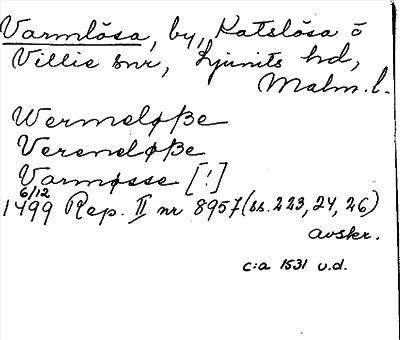 Varmlösa, by, Katslösa o
Villie snr, Ljunits hd,
Malm. l.
Wermeløße
Veremeløße
Varmøsse [!]
6/12
1499 Rep. II nr 8957 (ss. 223, 24, 26)
avskr.
c:a 1531 u.d.